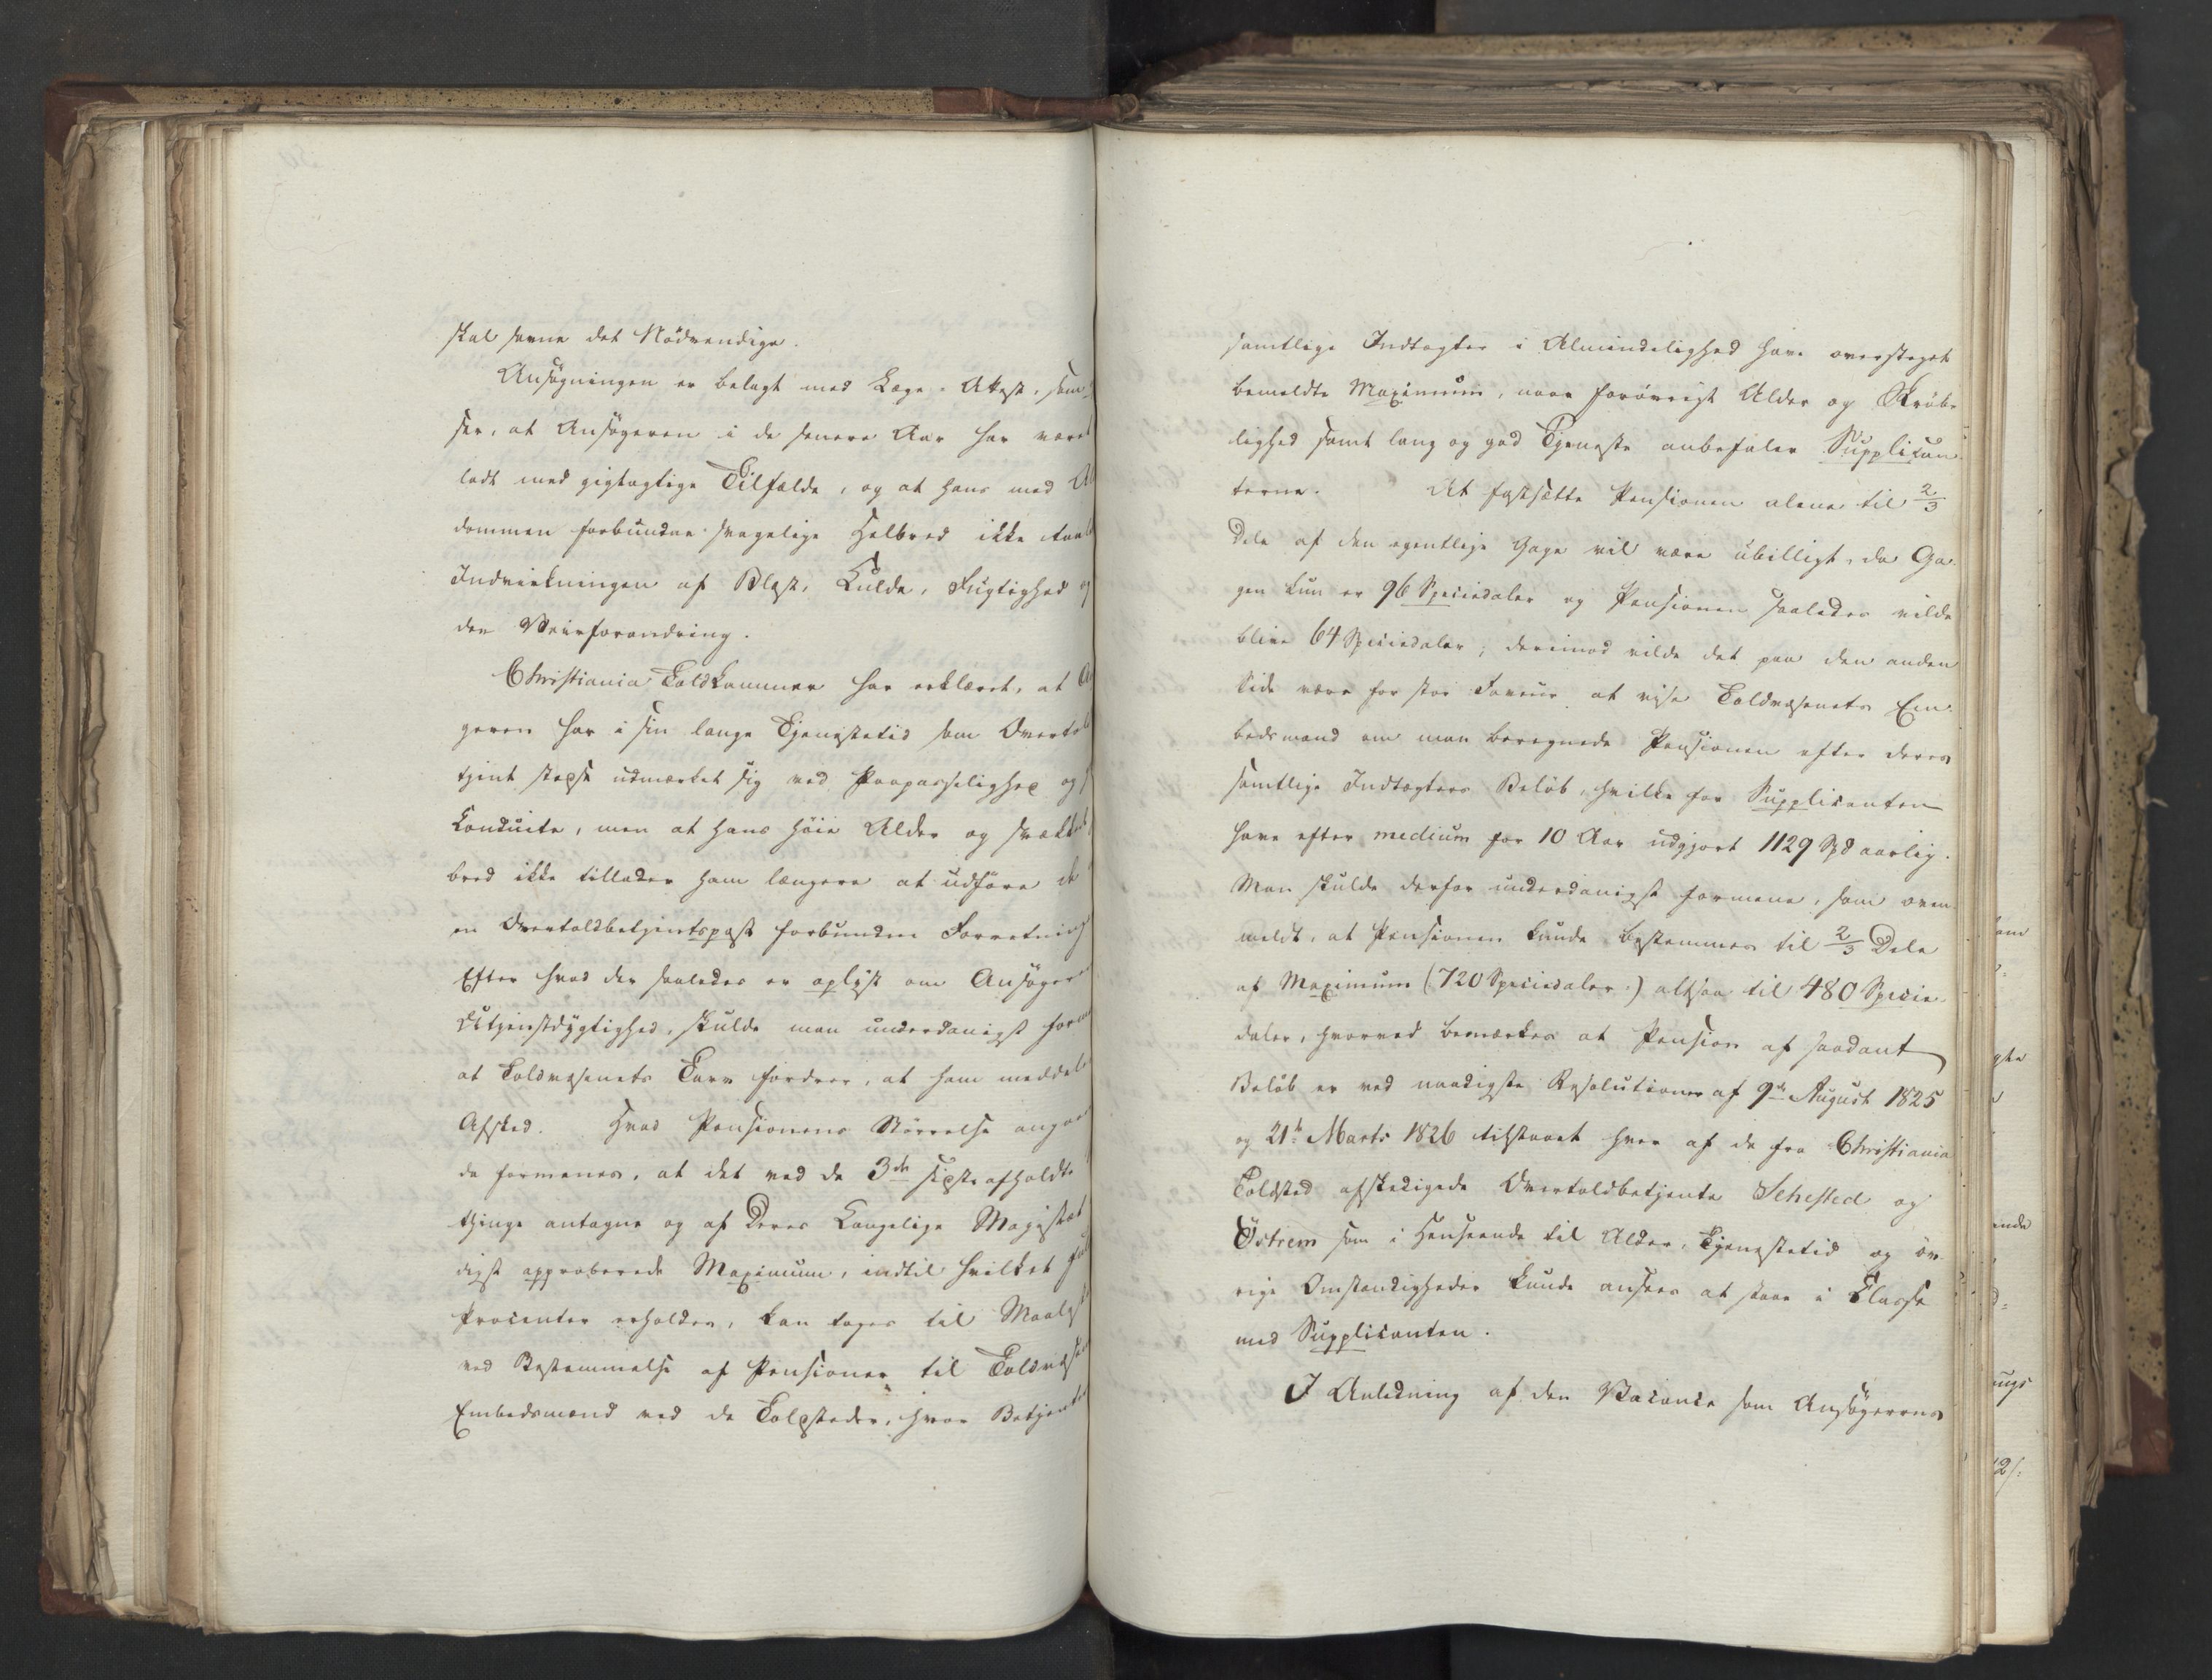 skal savne det Nödvendige.
Ansögningen er belagt med Læge-Attest, som
ser, at Ansögeren i de senere Aar har været
ladt med gigtagtige Tilfælde, og at hans med Al
dommen forbundne svagelige Helbred ikke taale
Indvirkningen af Blæst, Kulde, Fugtighed og
den Veirforandring.
Christiania Toldkammer har erklæret, at An
geren har i sin lange Tjenestetid som Overtol
tjent stedse udmærket sig ved Paapasselighed og
Conduite, men at hans höie Alder og svækk
bred ikke tillader ham længere at udföre de
en Overtoldbetjentspost forbundne Forretning
Efter hvad der saaledes er oplyst om Ansöger
Utjenstdygtighed, skulde man underdanigst form
at Toldvæsenets Tarv fordrer, at ham meddele
Afsked. Hvad Pensionens Störrelse angaae
da formenes, at det ved de 3de sidste afholdte
thinge antagne og af Deres Kongelige Majestæt
digst approberede Maximum, indtil hvilket
Procenter erholdes, kan tages til Maale
ved Bestemmelse af Pensioner til Toldvæse
Embedsmænd ved de Toldsteder, hvor Betjente
samtlige Indtægter i Almindelighed have oversteget
bemeldte Maximum, naar foröevrigt Alder og Skröbe
lighed samt lang og god Tjeneste anbefaler Supplican
terne. At fastsætte Pensionen alene til 2/3
Dele af den egentlige Gage vil være übilligt, da Ga
gen kun er 96 Speciedaler og Pensionen saaledes vilde
blive 64 Speciedaler; derimod vilde det paa den anden
Side være for stor Faveur at vise Toldvæsenets Em
bedsmænd om man beregnede Pensionen efter deres
samtlige Indtægters Belöb, hvilke for Supplicanten
have efter medium for 10 Aar udgjort 1129 Spd aarlig.
Man skulde derfor underdanigst formene, som oven
meldt, at Pensionen kunde bestemmes til 2/3 Dele
af Maximum (720 Speciedaler) altsaa til 480 Specie
daler, hvorved bemærkes at Pension af saadant
Belöb er ved naadigste Resolutioner af 9de August 1825
og 21de Marts 1826 tilstaaet hver af de fra Christiania
Toldsted afskedigede Overtoldbetjente Sehested og
Östrem som i Henseende til Alder, Tjenestetid og öv
rige Omstændigheder kunde ansees at staae i Classe
med Supplicanten.
I Anledning af den Vacance som Ansögerens